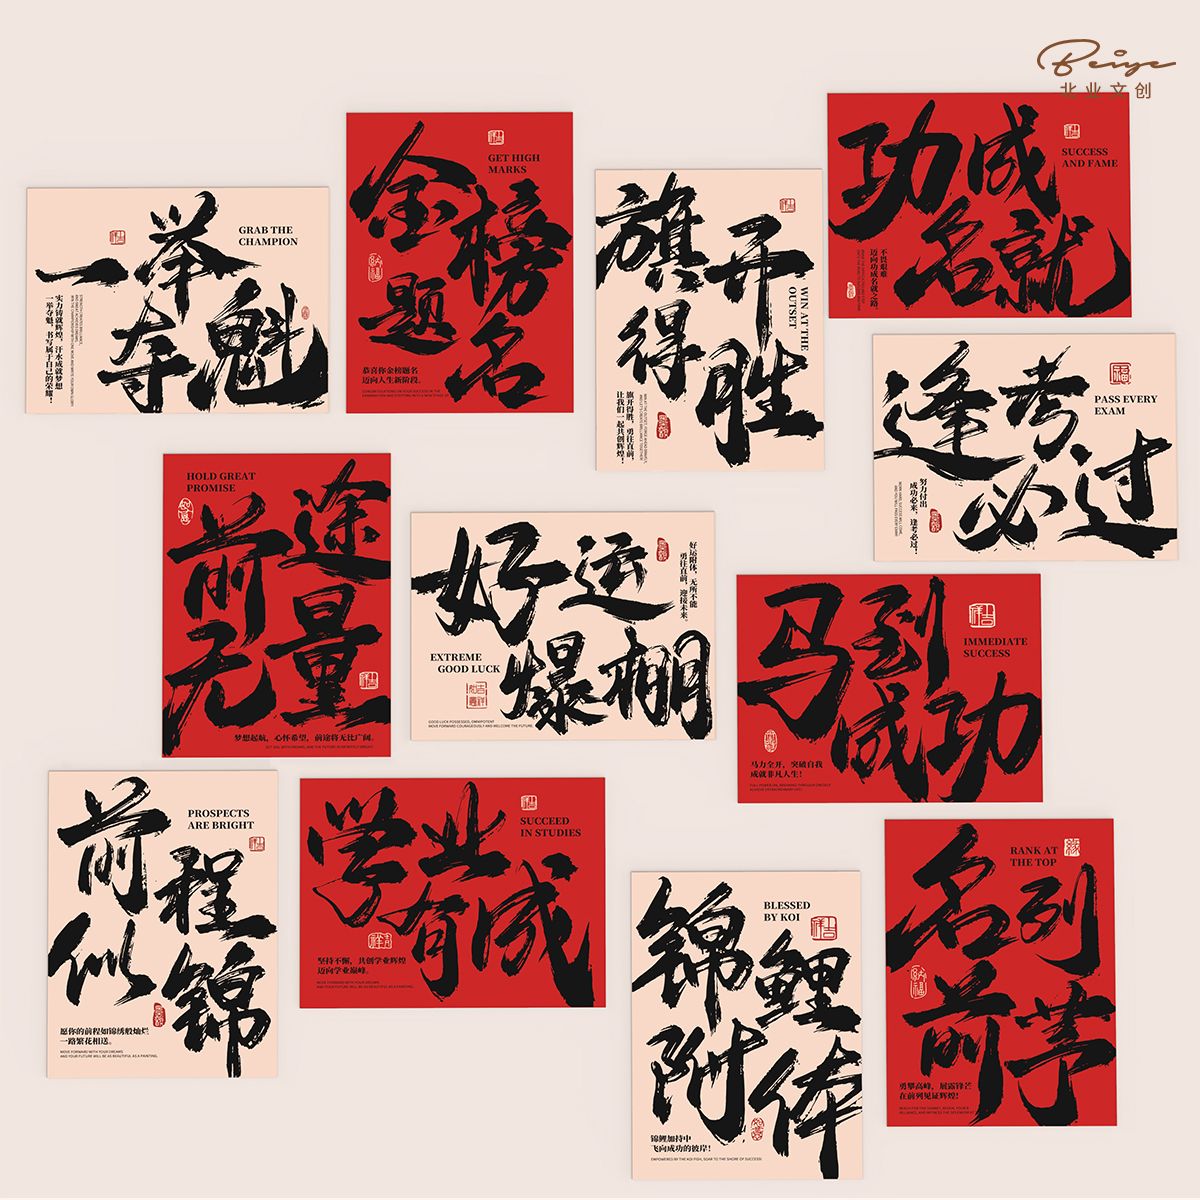 Beiye
北业文创
一举
夺魁
GRAB THE
CHAMPION
实力铸就辉煌，汗水成就梦想
一举夺魁，书写属于自己的荣耀！
金榜
题名
GET HIGH
MARKS
恭喜你金榜题名
迈向人生新阶段。
旗开
得胜
WIN AT THE
OUTSET
旗开得胜，勇往直前，
让我们一起共创辉煌！
功成
名就
SUCCESS
AND FAME
不畏艰难
迈向功成名就之路。
逢考
必过
PASS EVERY
EXAM
努力付出
成功必来，逢考必过！
HOLD GREAT
PROMISE
前途
无量
梦想起航，心怀希望，前途将无比广阔。
好运
爆棚
好运附体，无所不能
勇往直前，迎接未来。
EXTREME
GOOD LUCK
GOOD LUCK POSSESSED, OMNIPOTENT
MOVE FORWARD COURAGEOUSLY AND WELCOME THE FUTURE.
马到
成功
IMMEDIATE
SUCCESS
马力全开，突破自我
成就非凡人生！
前程
似锦
PROSPECTS
ARE BRIGHT
愿你的前程如锦绣般灿烂
一路繁花相送。
MOVE FORWARD WITH YOUR DREAMS
AND YOUR FUTURE WILL BE AS BEAUTIFUL AS A PAINTING.
学业
有成
SUCCEED
IN STUDIES
坚持不懈，共创学业辉煌
迈向学业巅峰。
MOVE FORWARD WITH YOUR DREAMS
AND YOUR FUTURE WILL BE AS BEAUTIFUL AS A PAINTING.
锦鲤
附体
BLESSED
BY KOI
锦鲤加持中
飞向成功的彼岸！
EMPOWERED BY THE KOI FISH, SOAR TO THE SHORE OF SUCCESS!
名列
前茅
RANK AT
THE TOP
勇攀高峰，展露锋芒
在前列见证辉煌！